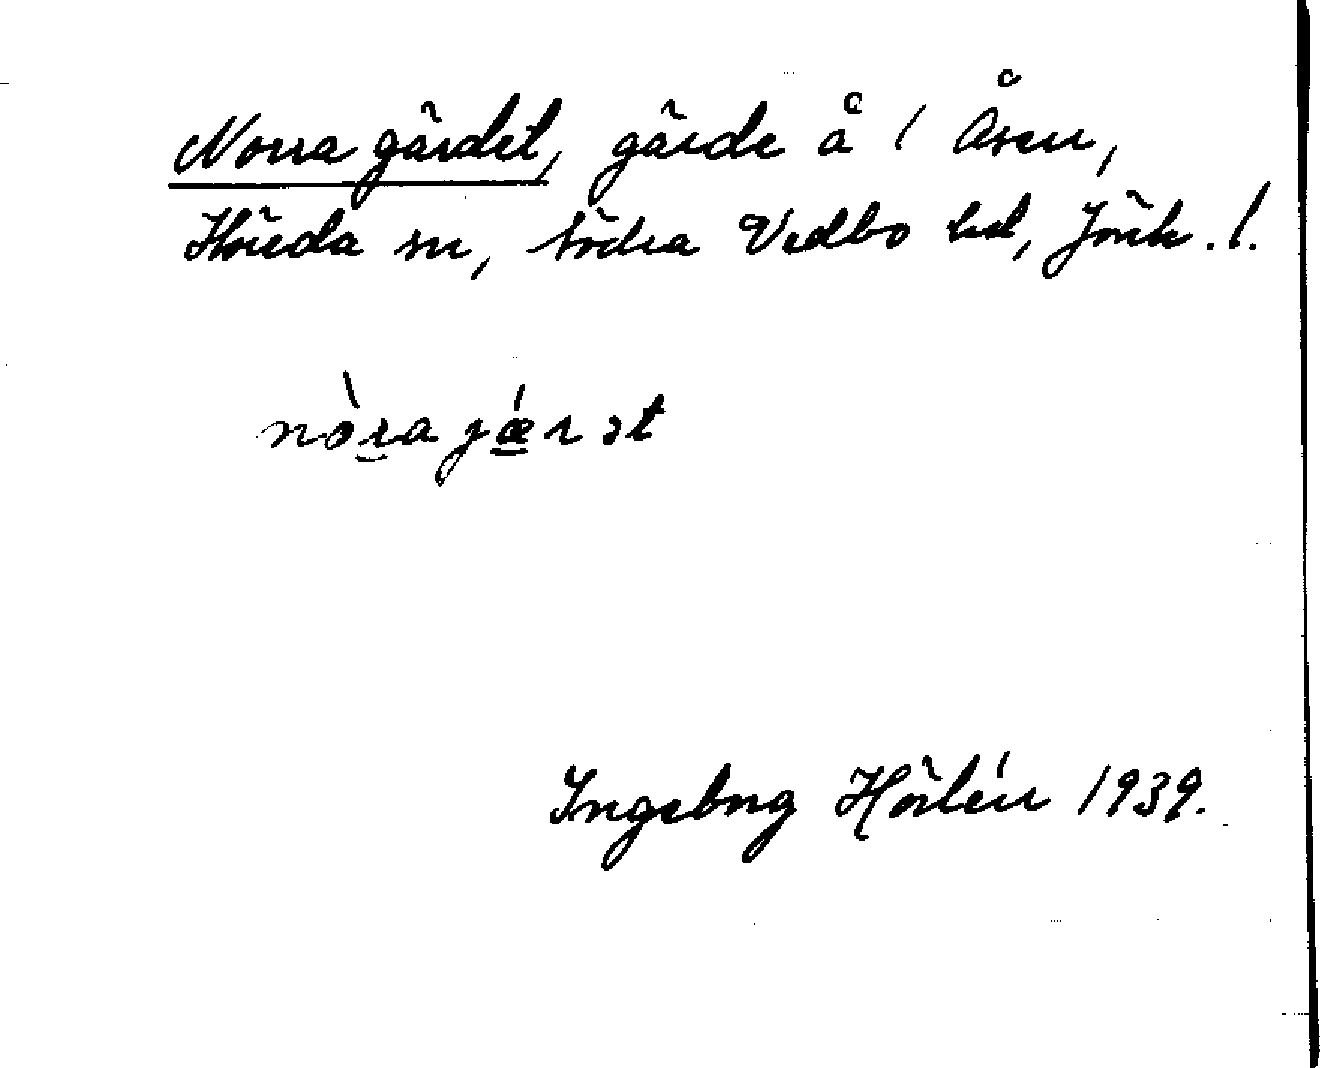 Norra gärdet, gärde å 1 Åsen,
Höreda sn, södra Vedbo hd, Jönk. l.
nòra jǽrət
Ingeborg Hörlén 1939.